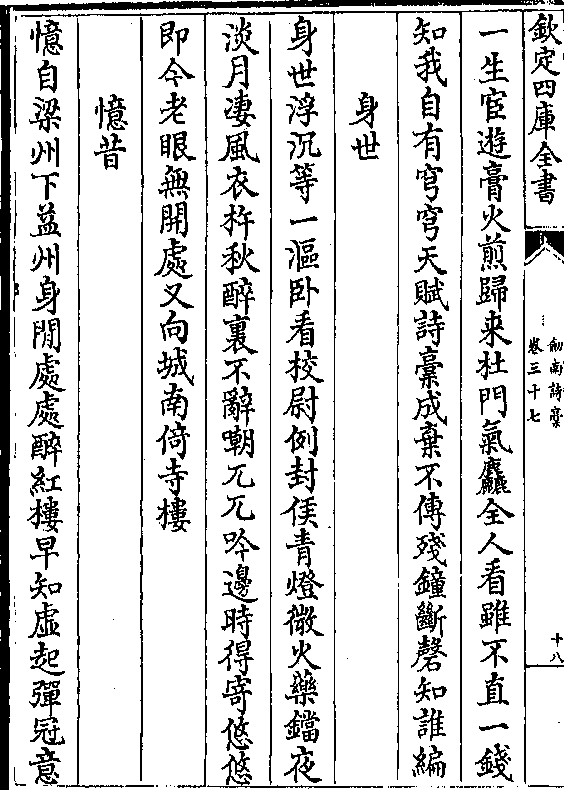 欽定四庫全書
劍南詩藁
卷三十七
十八
一生宦遊膏火煎歸来杜門氣麤全人看雖不直一錢
知我自有穹穹天賦詩藁成棄不傳殘鐘斷磬知誰編
身世
身世浮沉等一漚卧看校尉例封侯青燈微火藥鐺夜
淡月凄風衣杵秋醉裏不辭嘲兀兀吟邊時得寄悠悠
即今老眼無開處又向城南倚寺樓
憶昔
憶自梁州下益州身閒處處醉紅樓早知虚起彈冠意